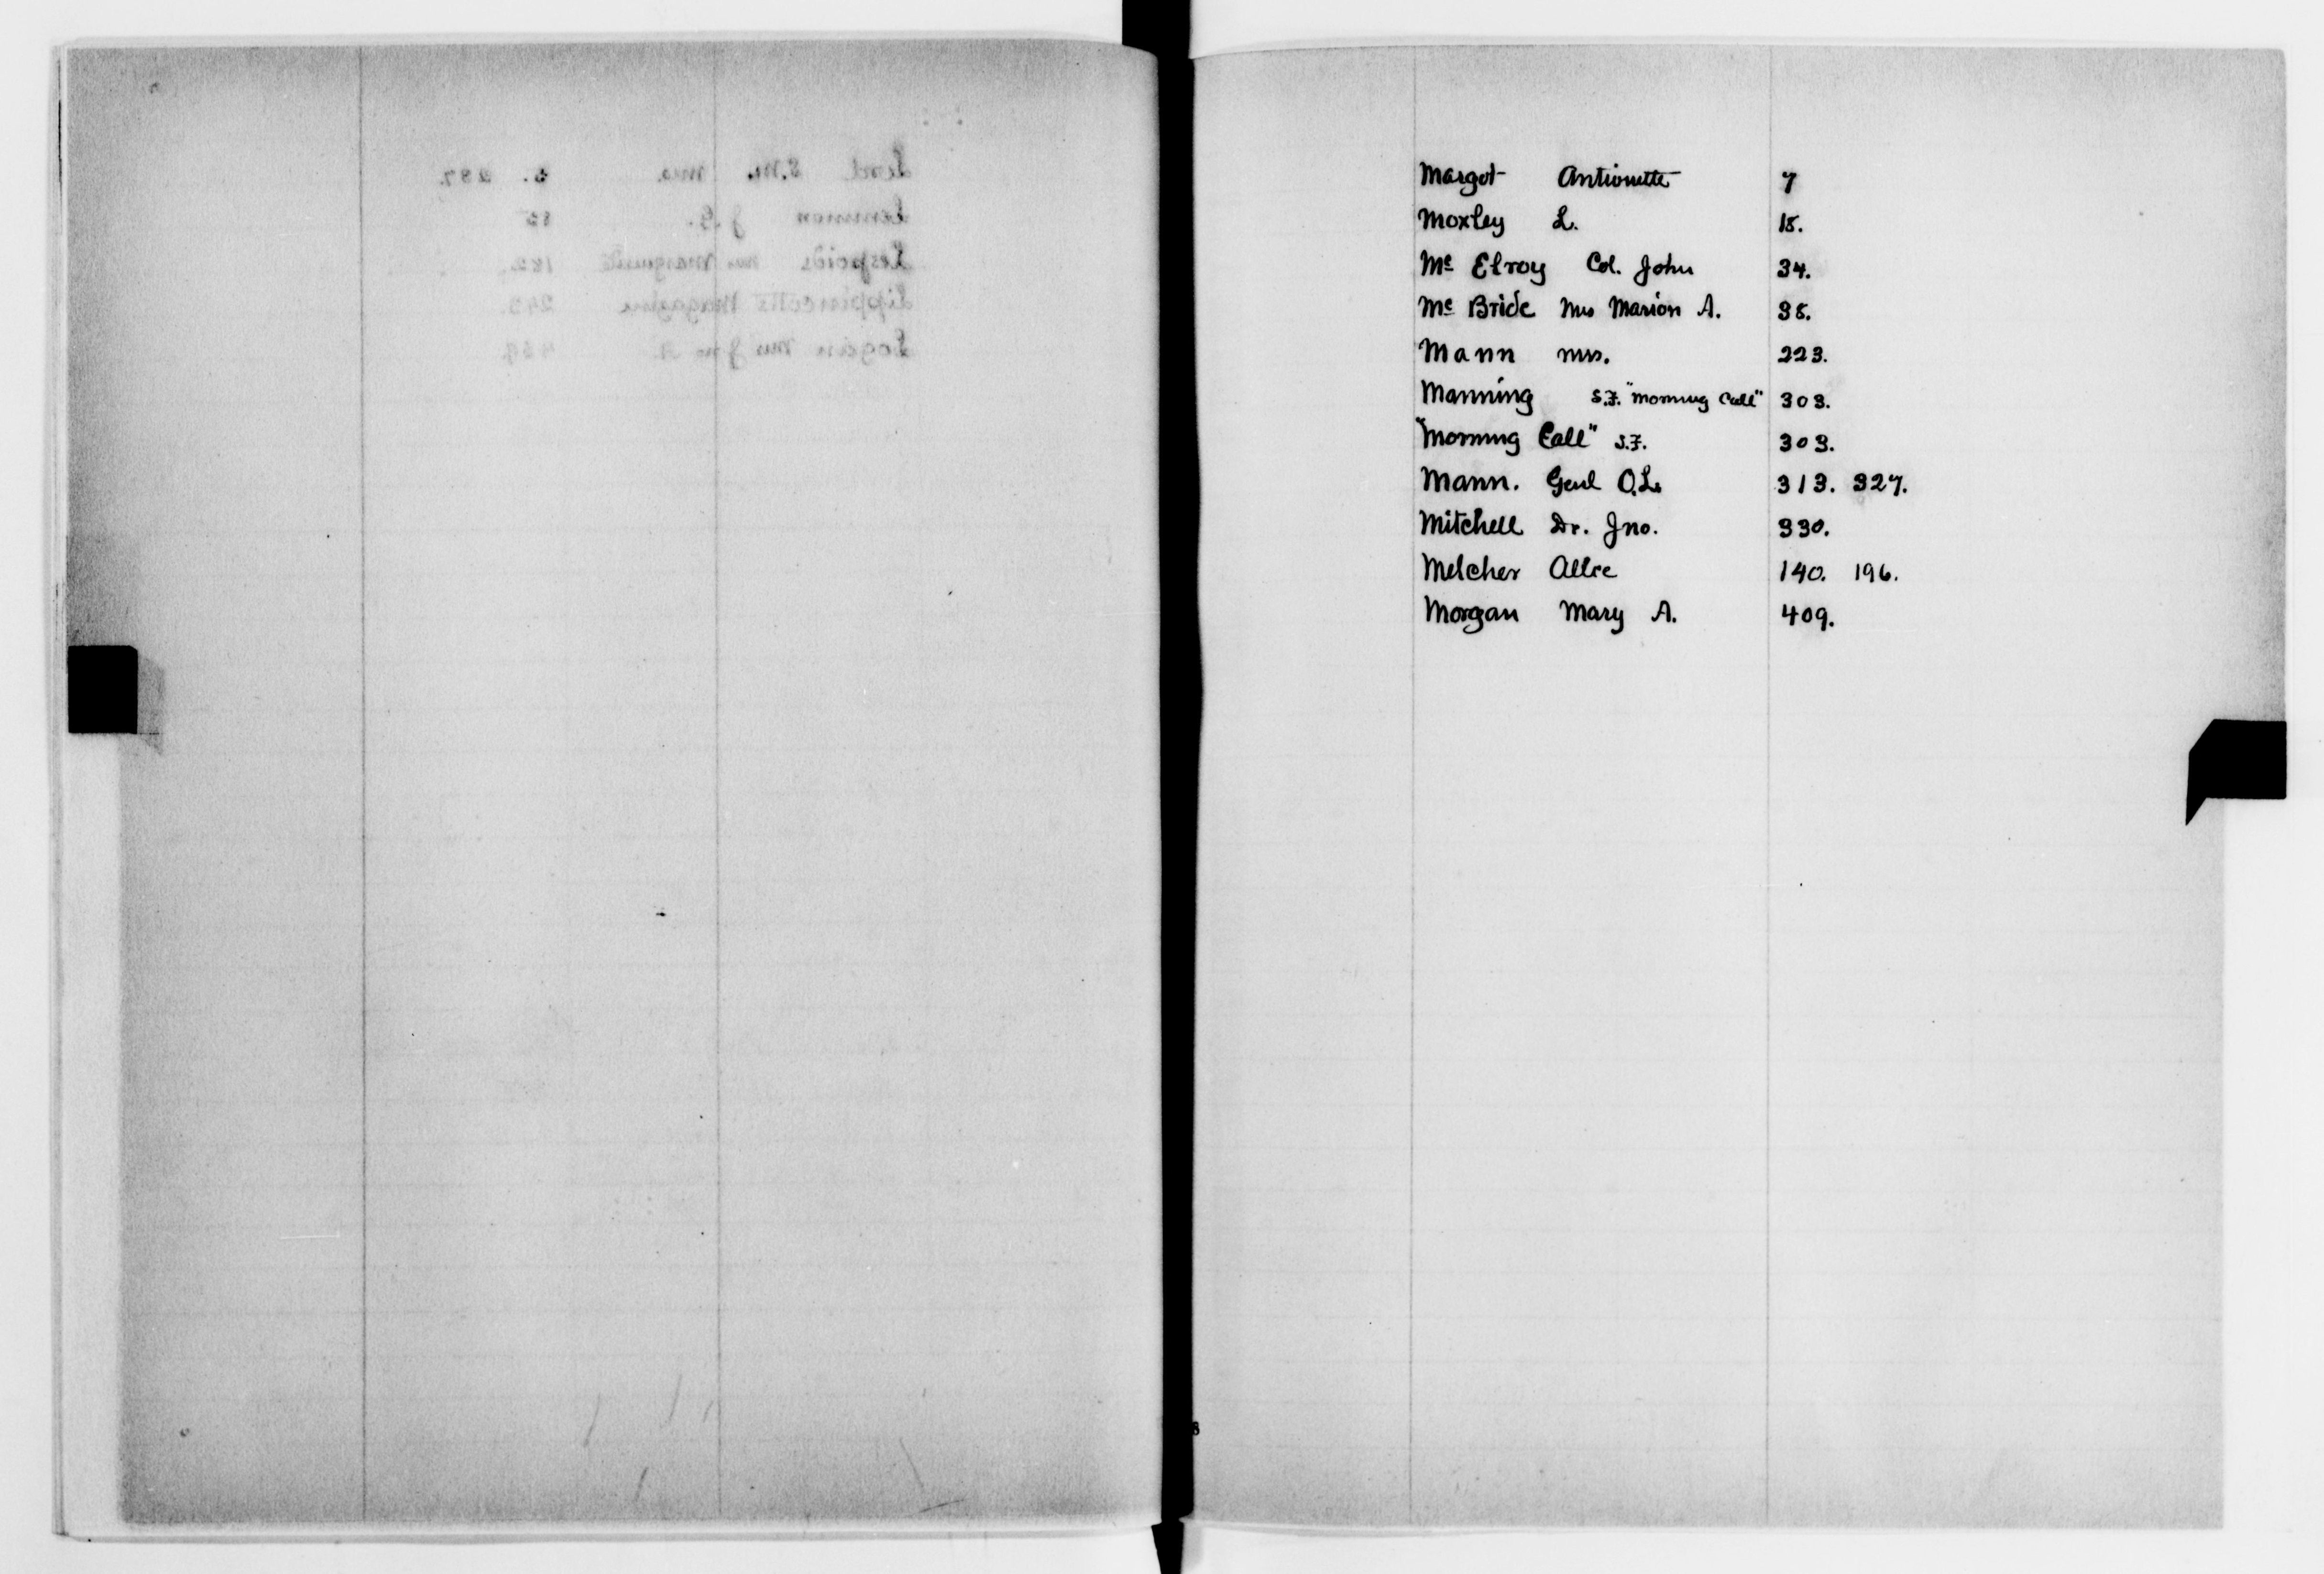 Margot Antionette 7
Moxley L. 18.
Mc Elroy Col. John 34.
Mc Bride Mrs Marion A. 38.
Mann Mrs. 223.
Manning S.F. "Morning Call" 303.
"Morning Call" S.F. 303.
Mann. Genl O.L. 313. 327.
Mitchell Dr. Jno. 330.
Melcher Allie 140. 196.
Morgan Mary A. 409.